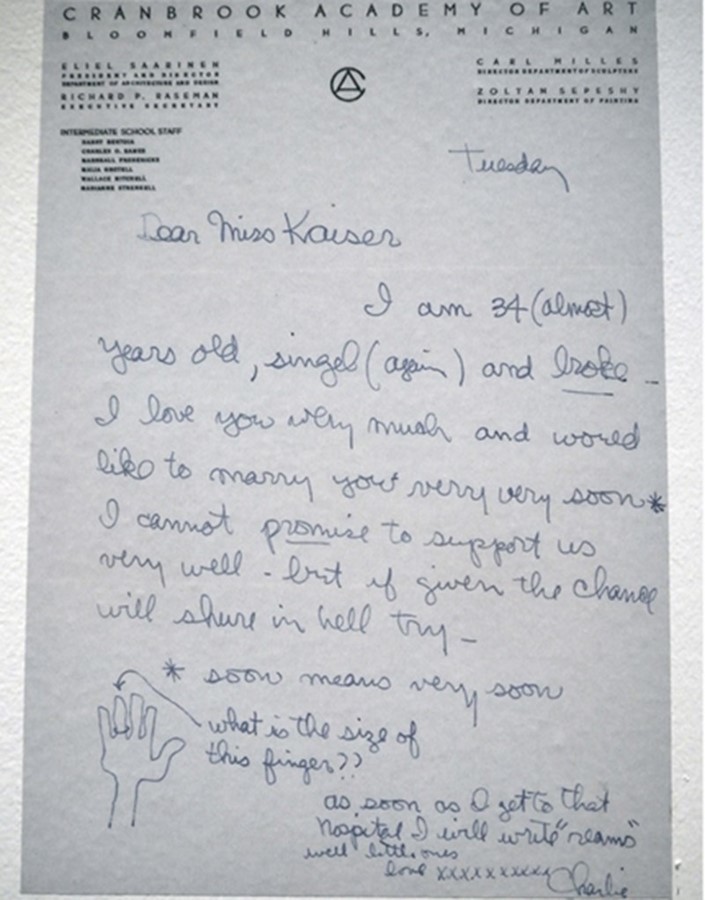 CRANBROOK ACADEMY OF ART
BLOOMFIELD HILLS, MICHIGAN
ELIEL SAARINEN
PRESIDENT AND DIRECTOR
DEPARTMENT OF ARCHITECTURE AND DESIGN
RICHARD P. RASEMAN
EXECUTIVE SECRETARY
CARL MILLES
DIRECTOR DEPARTMENT OF SCULPTURE
ZOLTAN SEPESHY
DIRECTOR DEPARTMENT OF PAINTING
INTERMEDIATE SCHOOL STAFF
HARRY BERTOIA
CHARLES O. EAMES
MARSHALL FREDERICKS
MAIJA GROTELL
WALLACE MITCHELL
MARIANNE STRENGELL
Tuesday
Dear Miss Kaiser
I am 34 (almost)
years old, singel (again) and broke –
I love you very much and would
like to marry you very very soon*
I cannot promise to support us
very well - but if given the chance
will shure in hell try –
* soon means very soon
what is the size of
this finger??
as soon as I get to that
hospital I will write "reams"
well little ones
love xxxxxxxxxx Charlie